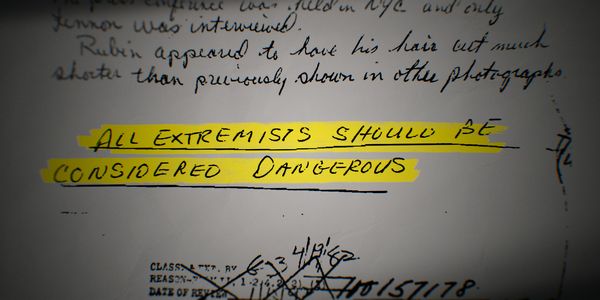 The press conference was held in NYC and only
Lennon was interviewed.
Rubin appeared to have his hair cut much
shorter than previously shown in other photographs.
ALL EXTREMISTS SHOULD BE
CONSIDERED DANGEROUS
CLASS BY
REASON
DATE OF REVIEW